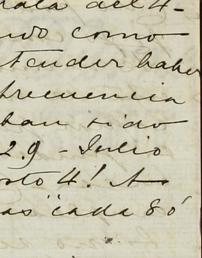 rata del 4-
ndo como
tender haber
frecuencia
ban sido
29 - Julio
osto 4! As
as "cada 8 ó